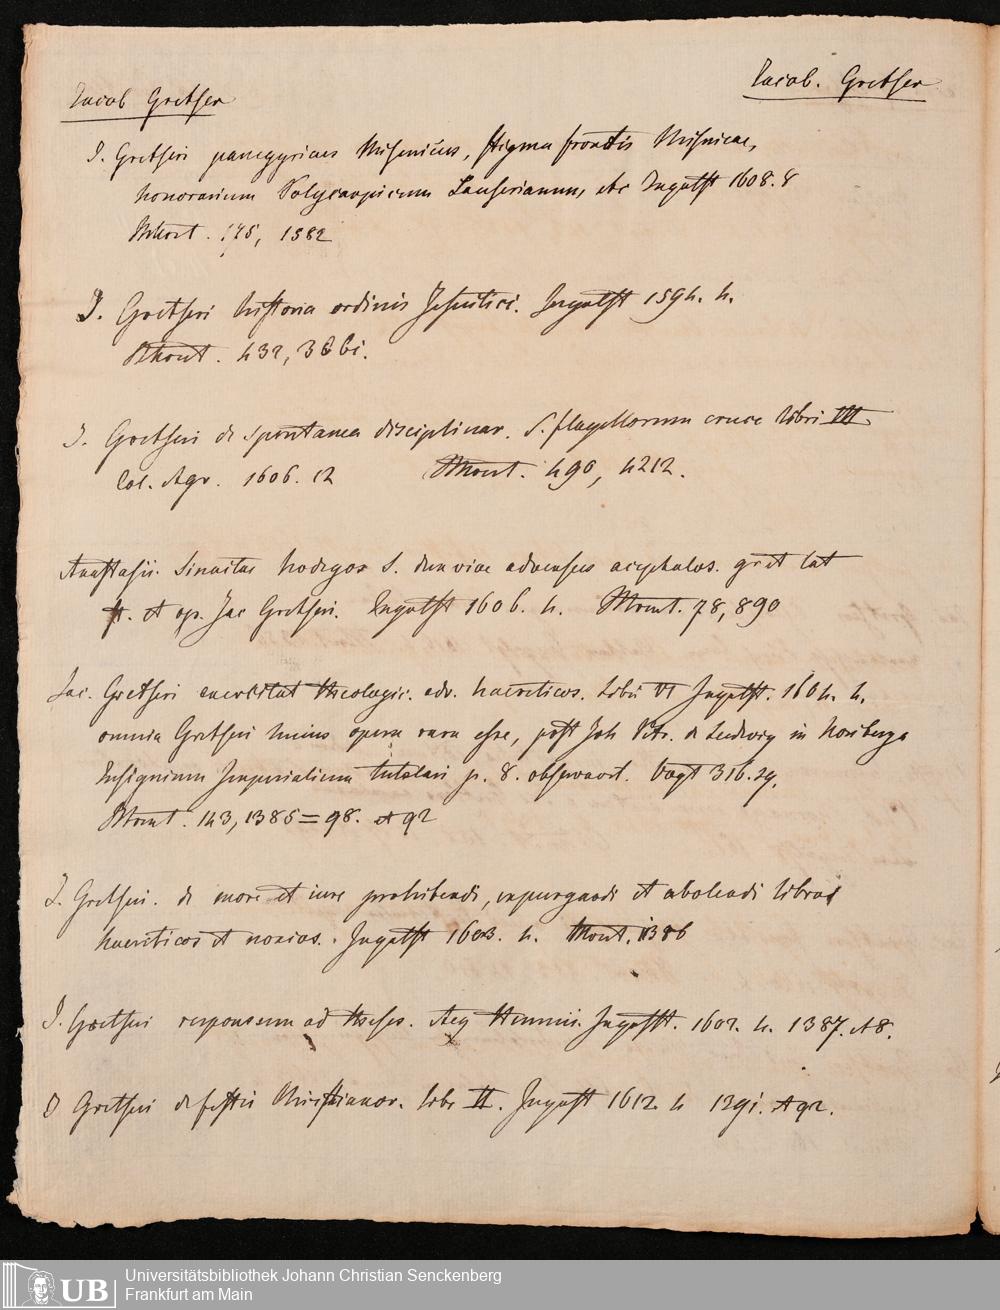 Jacob. Gretser
Jacob Gretser
J. Gretseri panegyricus Misenicus, stigma frontis Misnicae,
honorarium Polycarpicum Leuserianum, etc Ingolst 1608. 8
175, 1582
J. Gretseri historia ordinis Jesuitici. Ingolst 1594. 4.
432,
J. Gretseri de spontanea disciplinar. s. flagellorum cruce libri III
Col. Agr. 1606. 12 490, 4212.
Anastasii. Sinaitae hodegos s. dux viae adversus acephalos. gr et lat
et op. Jac Gretseri. Ingolst 1606. 4. 78, 890
Jac. Gretseri exercitat theologic. adv. haereticos. Libri VI Ingolst. 1604. 4.
omnia Gretseri huius opera rara esse, post Joh Petr. de Ludwig in Noriberga
Insignium Imperialium tutelari p. 8. observavit. Vogt 316. sq.
143, 1385 = 98. A 92
J. Gretseri. de more et iure prohibendi, expurgandi et abolendi libros
haereticos et noxios. Ingolst 1603. 4. 1386
J. Gretseri responsum ad theses. Aeg Hunnii. Ingolst. 1602. 4. 1387. A 8.
J Gretseri de festis Christianor. libr II. Ingolst 1612. 4 1391. A 92.
UB
Universitätsbibliothek Johann Christian Senckenberg
Frankfurt am Main